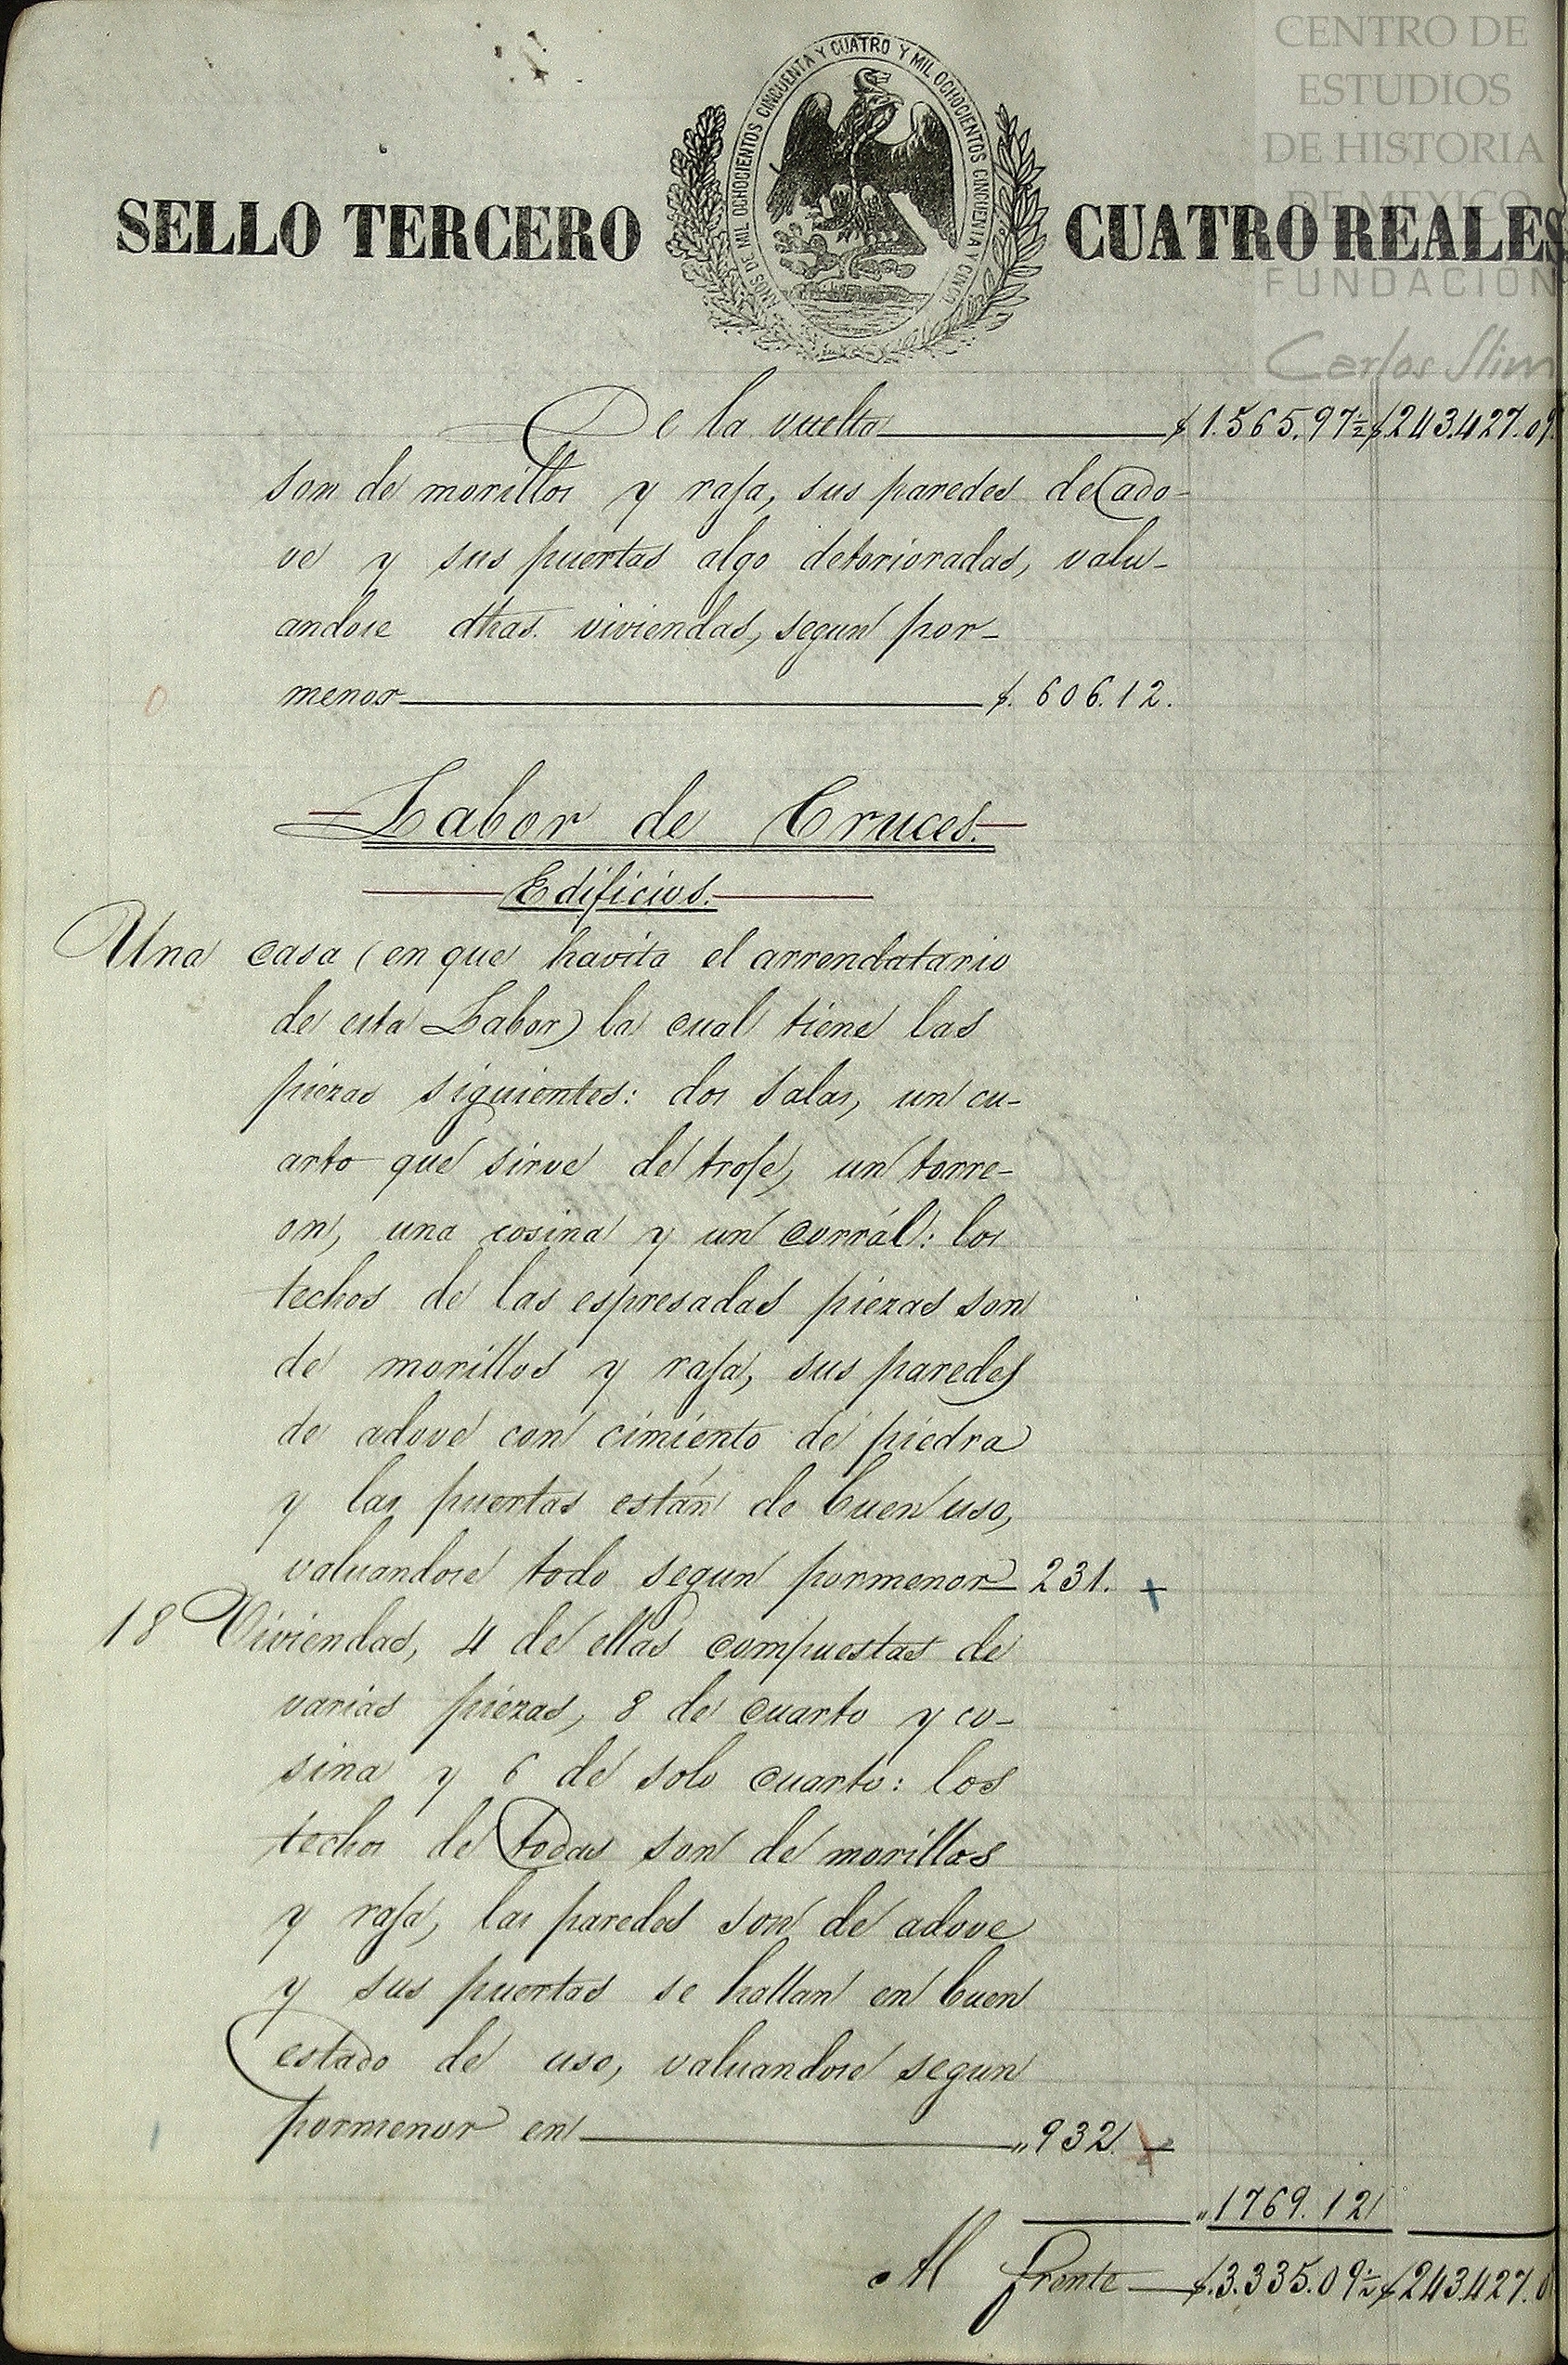 CENTRO DE
ESTUDIOS
DE HISTORIA
DE MEXICO
FUNDACIÓN
Carlos Slim
AÑOS DE MIL OCHOCIENTOS CINCUENTA Y CUATRO Y MIL OCHOCIENTOS CINCUENTA Y CINCO
SELLO TERCERO CUATRO REALES
De la vuelta $1.565.97½ $243.427.09
son de morillos y rafa, sus paredes de ado-
ve y sus puertas algo deterioradas, valu-
andose dhas. viviendas, segun por-
menor $. 606.12.
Labor de Cruces.
Edificios.
Una casa (en que havita el arrendatario
de esta Labor) la cual tiene las
piezas siguientes: dos salas, un cu-
arto que sirve de trofe, un torre-
on, una cosina y un corrál: los
techos de las espresadas piezas son
de morillos y rafa, sus paredes
de adove con cimiento de piedra
y las puertas están de buen uso,
valuandose todo segun pormenor 231.
18 Viviendas, 4 de ellas compuestas de
varias piezas, 8 de cuarto y co-
sina y 6 de solo cuarto: los
techos de todas son de morillos
y rafa, las paredes son de adove
y sus puertas se hallan en buen
estado de uso, valuandose segun
pormenor en „932.
„1769.12
Al frente $.3.335.09½ $243.427.0